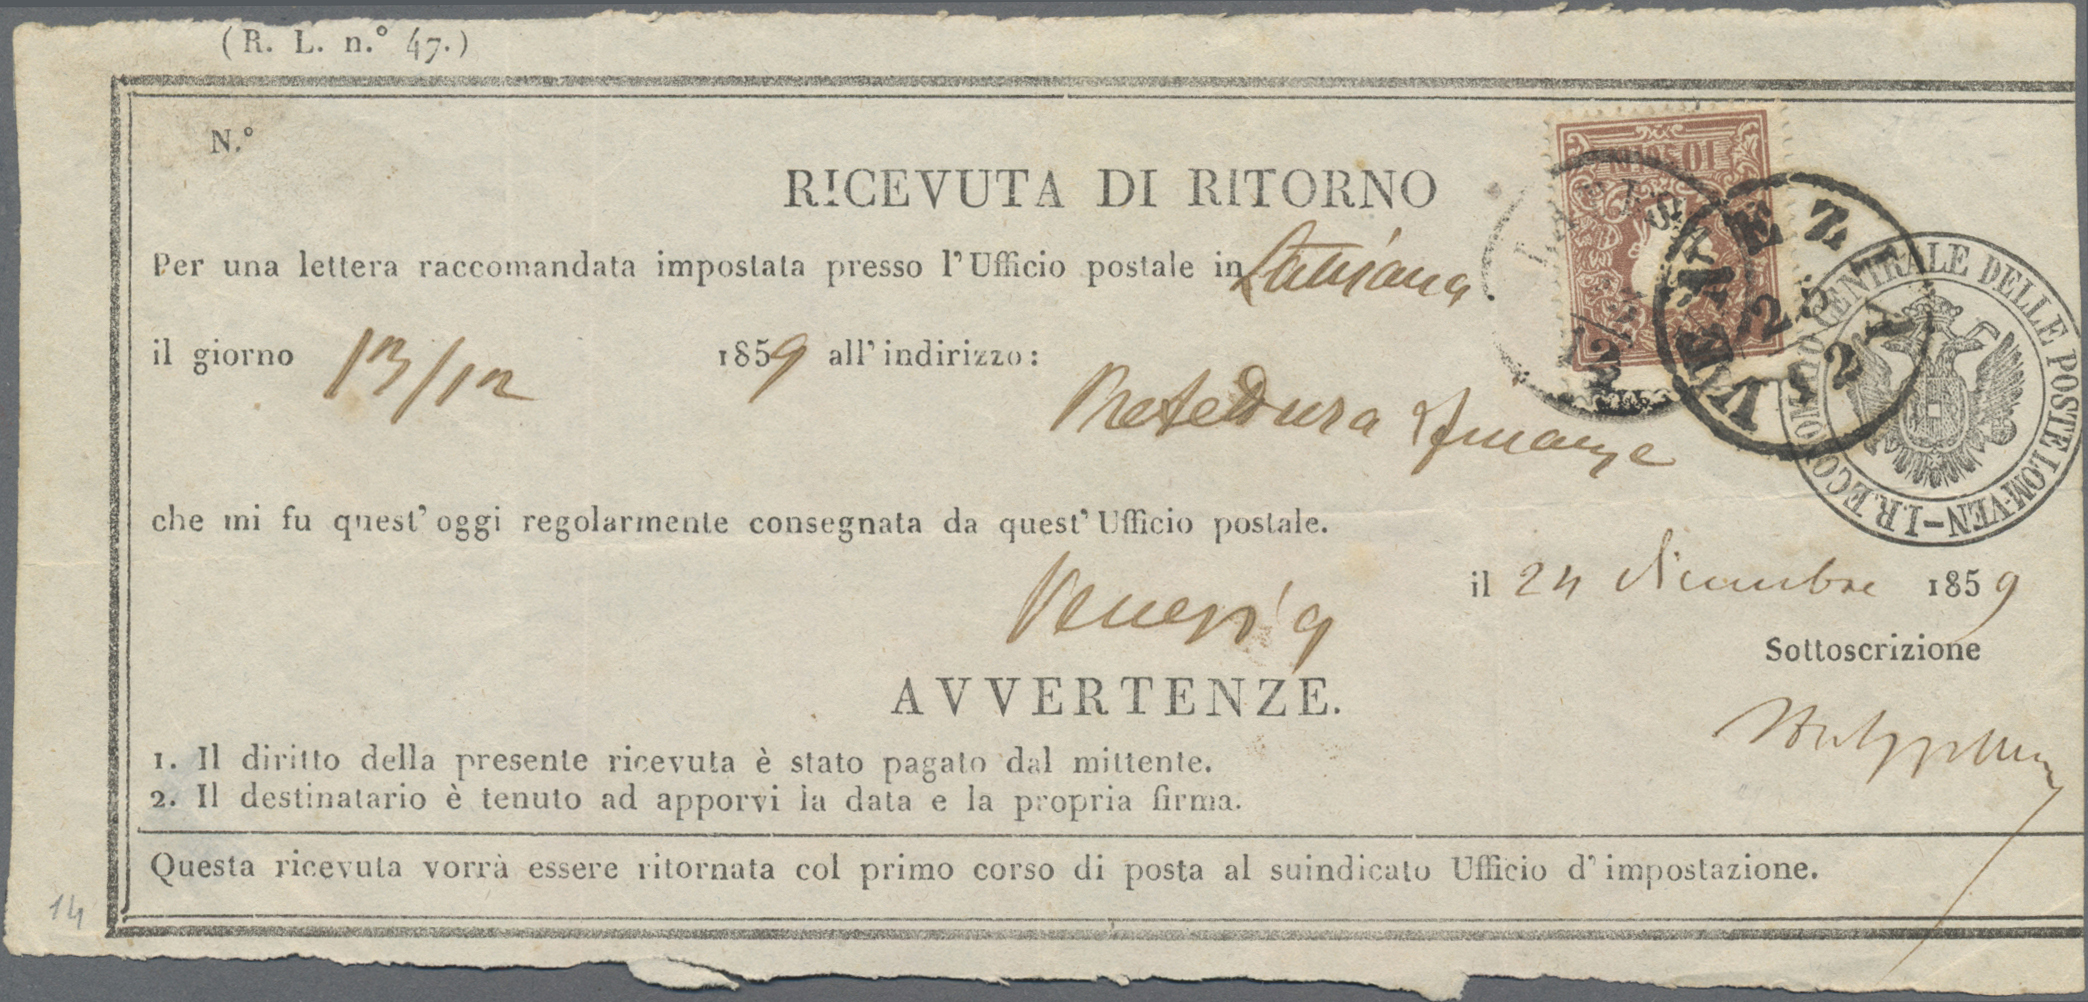 (R. L. n.° 47.)
N.°
RICEVUTA DI RITORNO
Per una lettera raccomandata impostata presso l'Ufficio postale in Latisana
il giorno 13/12 1859 all'indirizzo:
che mi fu quest'oggi regolarmente consegnata da quest'Ufficio postale.
Venezia
il 24 dicembre 1859
Sottoscrizione
AVVERTENZE.
1. Il diritto della presente ricevuta è stato pagato dal mittente.
2. Il destinatario è tenuto ad apporvi la data e la propria firma.
Questa ricevuta vorrà essere ritornata col primo corso di posta al suindicato Ufficio d'impostazione.
14
VENEZIA
I.R. ECONOMATO CENTRALE DELLE POSTE LOM-VEN